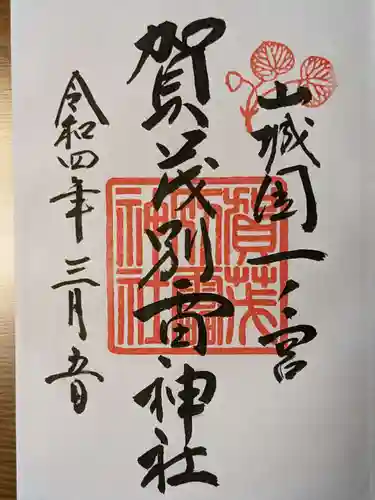 山城国一ノ宮
賀茂別雷神社
令和四年三月五日
賀茂
別雷
神社